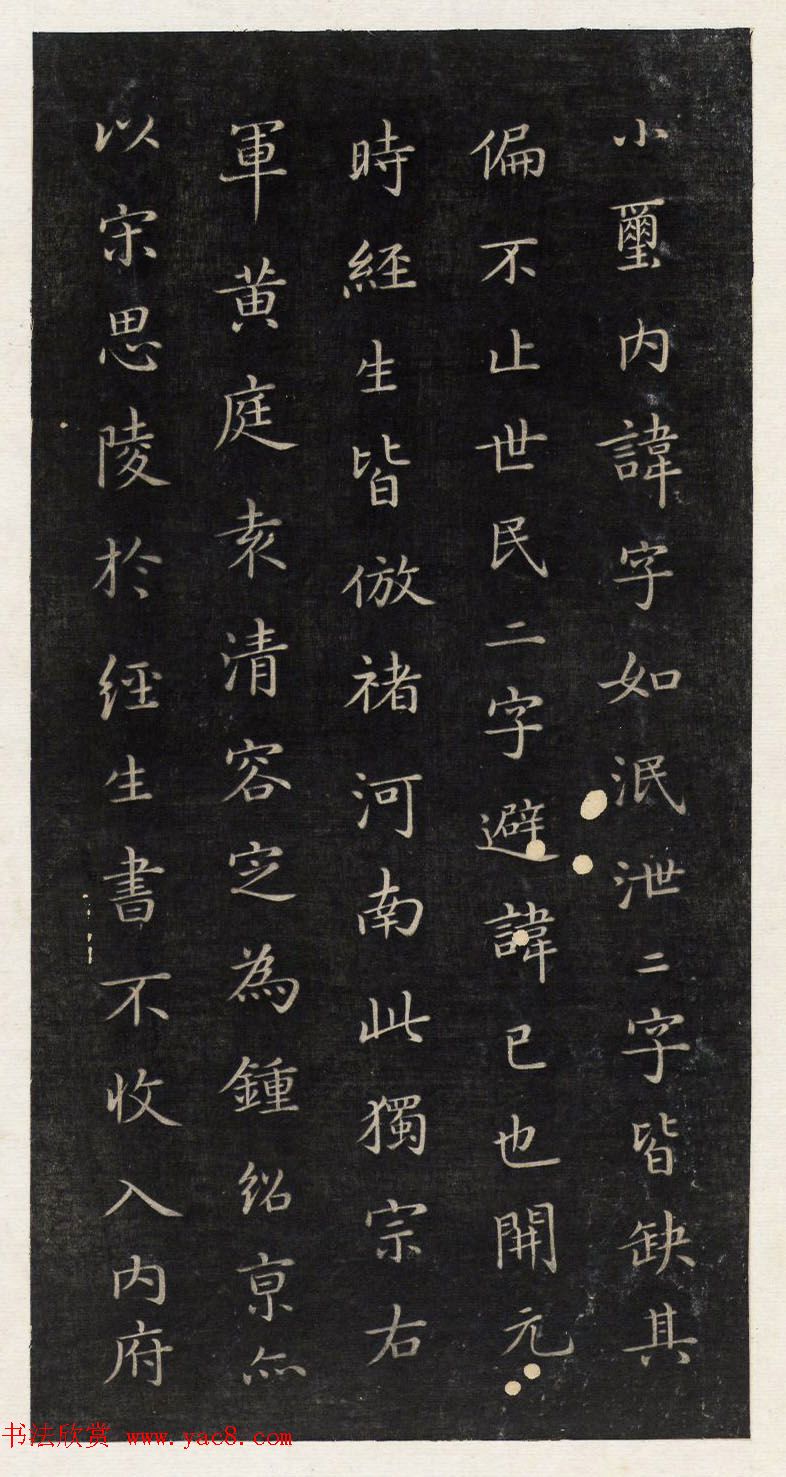 小璽内諱字如泯泄二字皆缺其
偏不止世民二字避諱已也開元
時經生皆倣褚河南此獨宗右
軍黄庭袁清容定為鍾紹京亦
以宋思陵於經生書不收入内府
书法欣赏 www.yac8.com